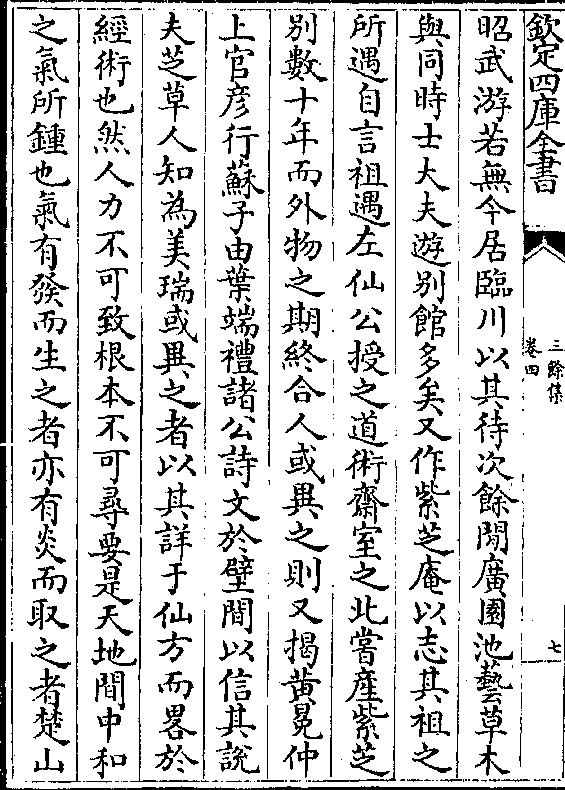 欽定四庫全書
三餘集
卷四
七
昭武游若無今居臨川以其待次餘閒廣園池藝草木
與同時士大夫遊别館多矣又作紫芝庵以志其祖之
所遇自言祖遇左仙公授之道術齋室之北嘗產紫芝
别數十年而外物之期終合人或異之則又揭黄冕仲
上官彦行蘇子由葉端禮諸公詩文於壁間以信其說
夫芝草人知為美瑞或異之者以其詳于仙方而畧於
經術也然人力不可致根本不可尋要是天地間中和
之氣所鍾也氣有發而生之者亦有炎而取之者楚山